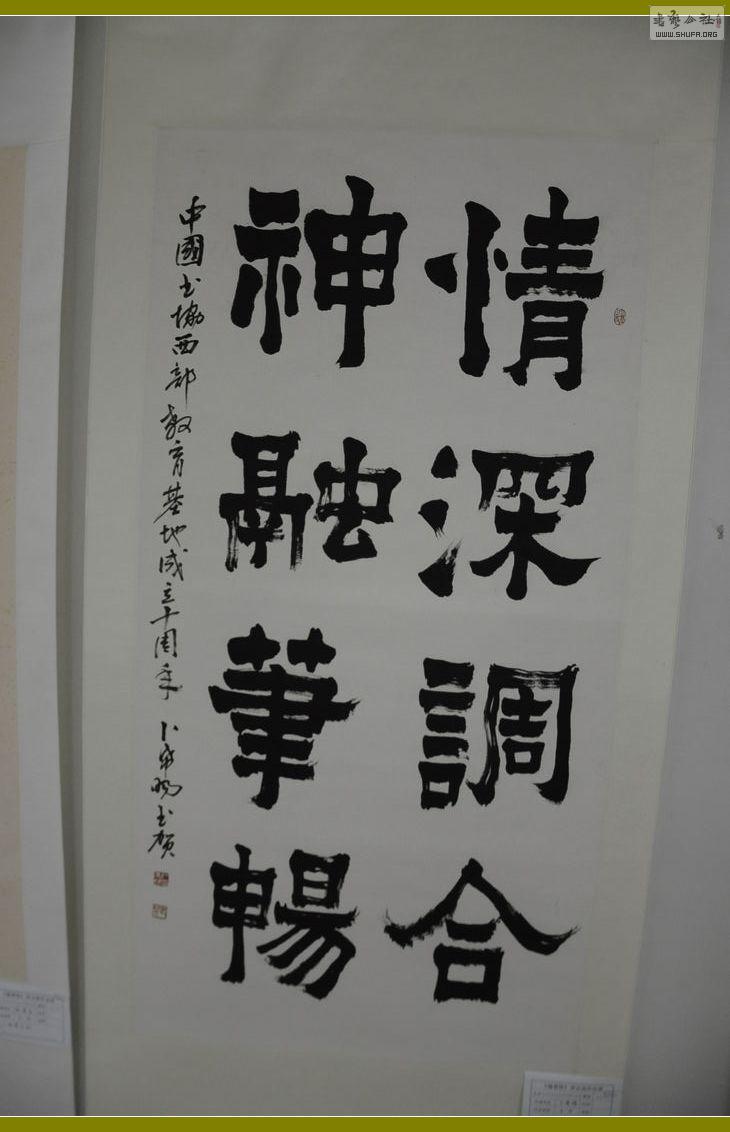 情深調合
神融筆暢
中國书協西部教育基地成立十周年 卜承暘书贺
书艺公社
WWW.SHUFA.ORG